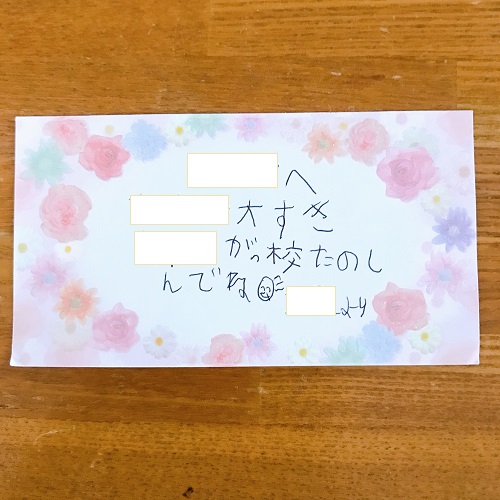 へ
大すき
がっ校たのし
んでね
より